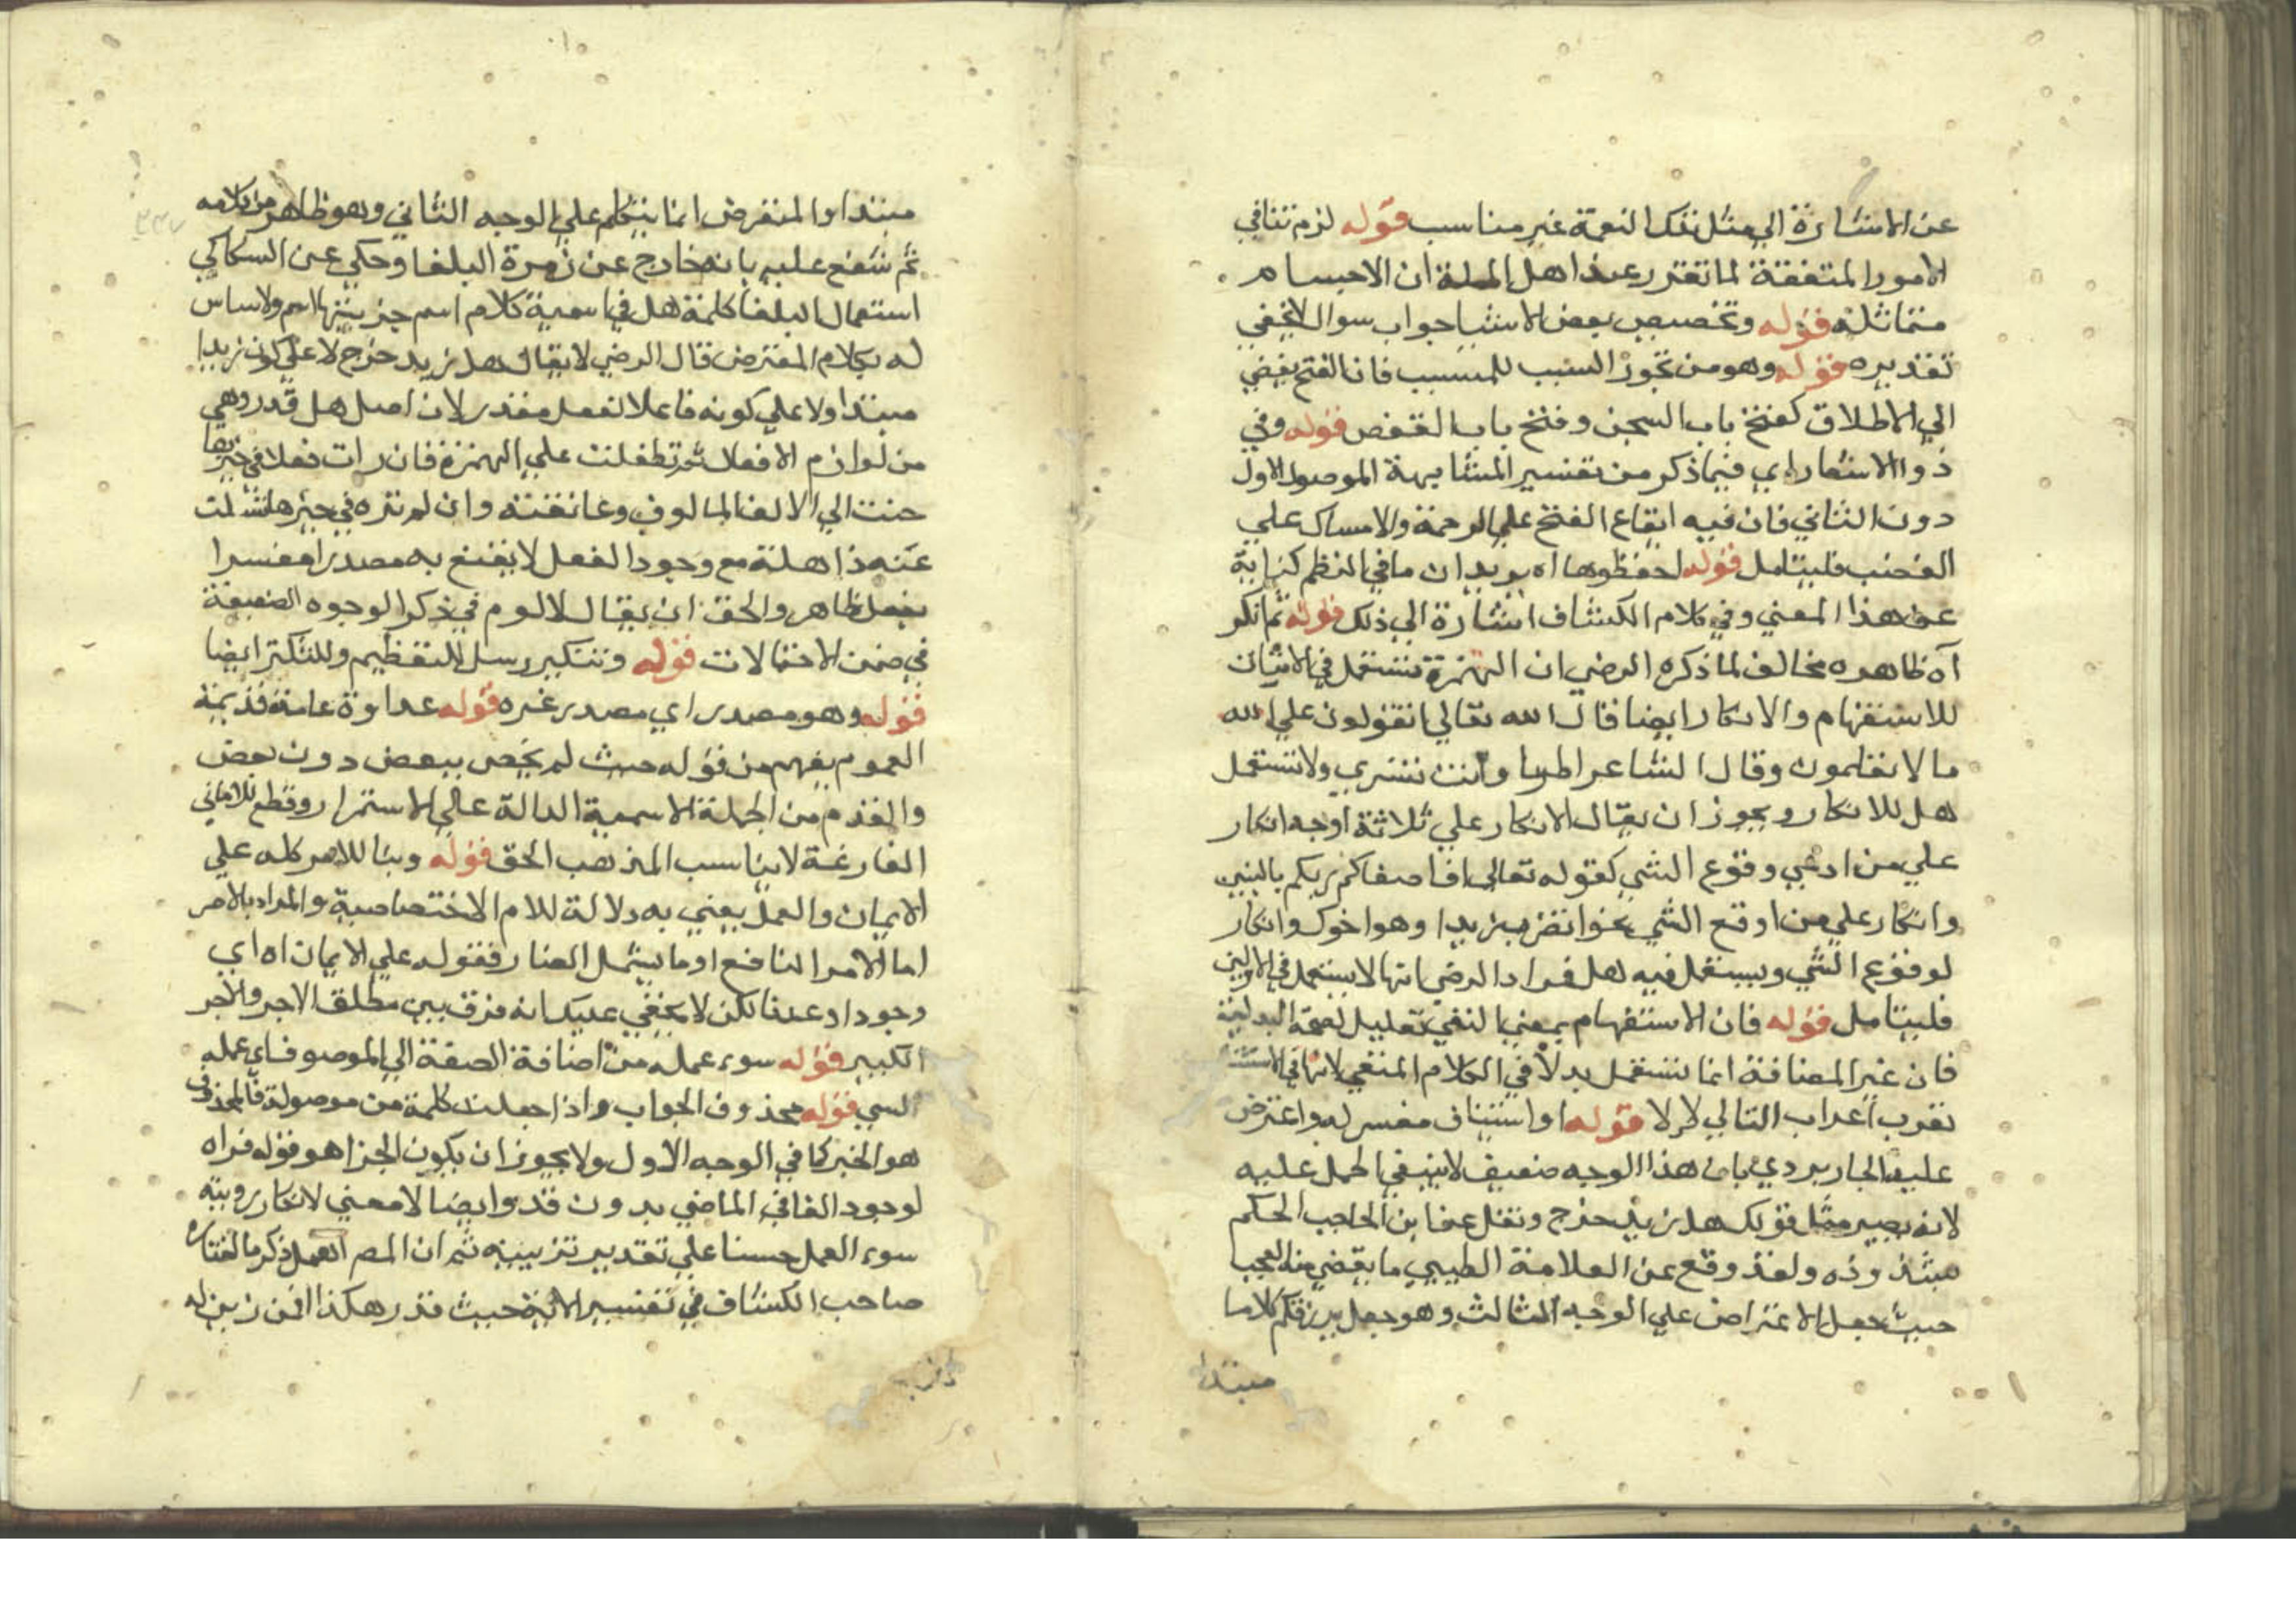 عن الاشارة الي مثل تلك النعمة غير مناسب قوله لزم تنافي
الامور المتفقة لما تقرر عند اهل الملة ان الاجسام
متماثلة قوله وتخصيص بعض الاشيا جواب سوال لا يخفي
تقديره قوله وهو من تجوز السبب للمسبب فان الفتح يفضي
الي الاطلاق كفتح باب السجن وفتح باب القفص قوله وفي
ذوا الاشعار اي فيما ذكر من تفسير المشابهة الموصول الاول
دون الثاني فان فيه ايقاع الفتح علي الرحمة والامساك علي
الغضب فليتامل قوله احفظوها اه يريد ان ما في النظم كناية
عن هذا المعني وفي كلام الكشاف اشارة الي ذلك قوله ثم انكر
اه ظاهره مخالف لما ذكره الرضي ان الهمزة تستعمل في الاثبات
للاستفهام والانكار ايضا قال الله تعالي اتقولون علي الله
ما لا تعلمون وقال الشاعر اطربا وانت قنسري ولا تستعمل
هل للانكار ويجوز ان يقال الانكار علي ثلاثة اوجه انكار
علي من ادعي وقوع الشي كقوله تعالي افاصفاكم ربكم بالبنين
وانكار علي من اوقع الشي نحو اتضرب زيدا وهو اخوك وانكار
لوقوع الشي ويستعمل فيه هل فمراد الرضي انها لا يستعمل في الاولين
فليتامل قوله فان الاستفهام بمعني النفي تعليل لصحة البدلية
فان غير المضافة انما تستعمل بدلا في الكلام المنفي لانها في الاستثنا
تعرب اعراب التالي لالا قوله او استيناف مفسر له واعترض
عليه الجاربردي بان هذا الوجه ضعيف لا ينبغي الحمل عليه
لانه يصير مثل قولك هل زيد خرج ونقل عن ابن الحاجب الحكم
بشذوذه ولقد وقع عن العلامة الطيبي ما يقضي منه العجب
حيث جعل الاعتراض علي الوجه الثالث وهو جعل يرزقكم كلاما
مبتدا
مبتدا والمعترض انما يتكلم علي الوجه الثاني وهو ظاهر من كلامه
ثم شنع عليه بانه خارج عن زمرة البلغا وحكي عن السكاكي
استعمال البلغا كلمة هل في اسمية كلام اسم جزيتها اسم ولا ساس
له بكلام المعترض قال الرضي لا يقال هل زيد خرج لا علي كون زيدا
مبتدا ولا علي كونه فاعلا لفعل مقدر لان اصل هل قد وهي
من لوازم الافعال ثم تطفلت علي الهمزة فان رات فعلا في حيزها
حنت الي الالف المالوف وعانقته وان لم تره في حيزها تسلت
عنه ذاهلة مع وجود الفعل لا يقنع به مصدرا مفسرا
بفعل ظاهر والحق ان يقال لا لوم في ذكر الوجوه الضعيفة
في ضمن الاحتمالات قوله وتنكير رسل للتعظيم وللتكثر ايضا
قوله وهو مصدر اي مصدر غره قوله عداوة عامة قديمة
العموم يفهم من قوله حيث لم يخص ببعض دون بعض
والقدم من الجملة الاسمية الدالة علي الاستمرار وقطع للاماني
الفارغة لا يناسب المذهب الحق قوله وبنا للامر كله علي
الايمان والعمل يعني به دلالة للام الاختصاصية والمراد بالامر
اما الامر النافع او ما يشمل الضار فقوله علي الايمان اه اي
وجودا وعدما لكن لا يخفي عليك انه فرق بين مطلق الاجر والاجر
الكبير قوله سوء عمله من اضافة الصفة الي الموصوف اي عمله
السي قوله محذوف الجواب واذا جعلت كلمة من موصولة فالمحذوف
هو الخبر كما في الوجه الاول ولا يجوز ان يكون الجزا هو قوله فراه
لوجود الفا في الماضي بدون قد وايضا لا معني لانكار رويته
سوء العمل حسنا علي تقدير تزيينه ثم ان المص اهمل ذكر ما اختاره
صاحب الكشاف في تفسير الاية حيث قدر هكذا افمن زين له